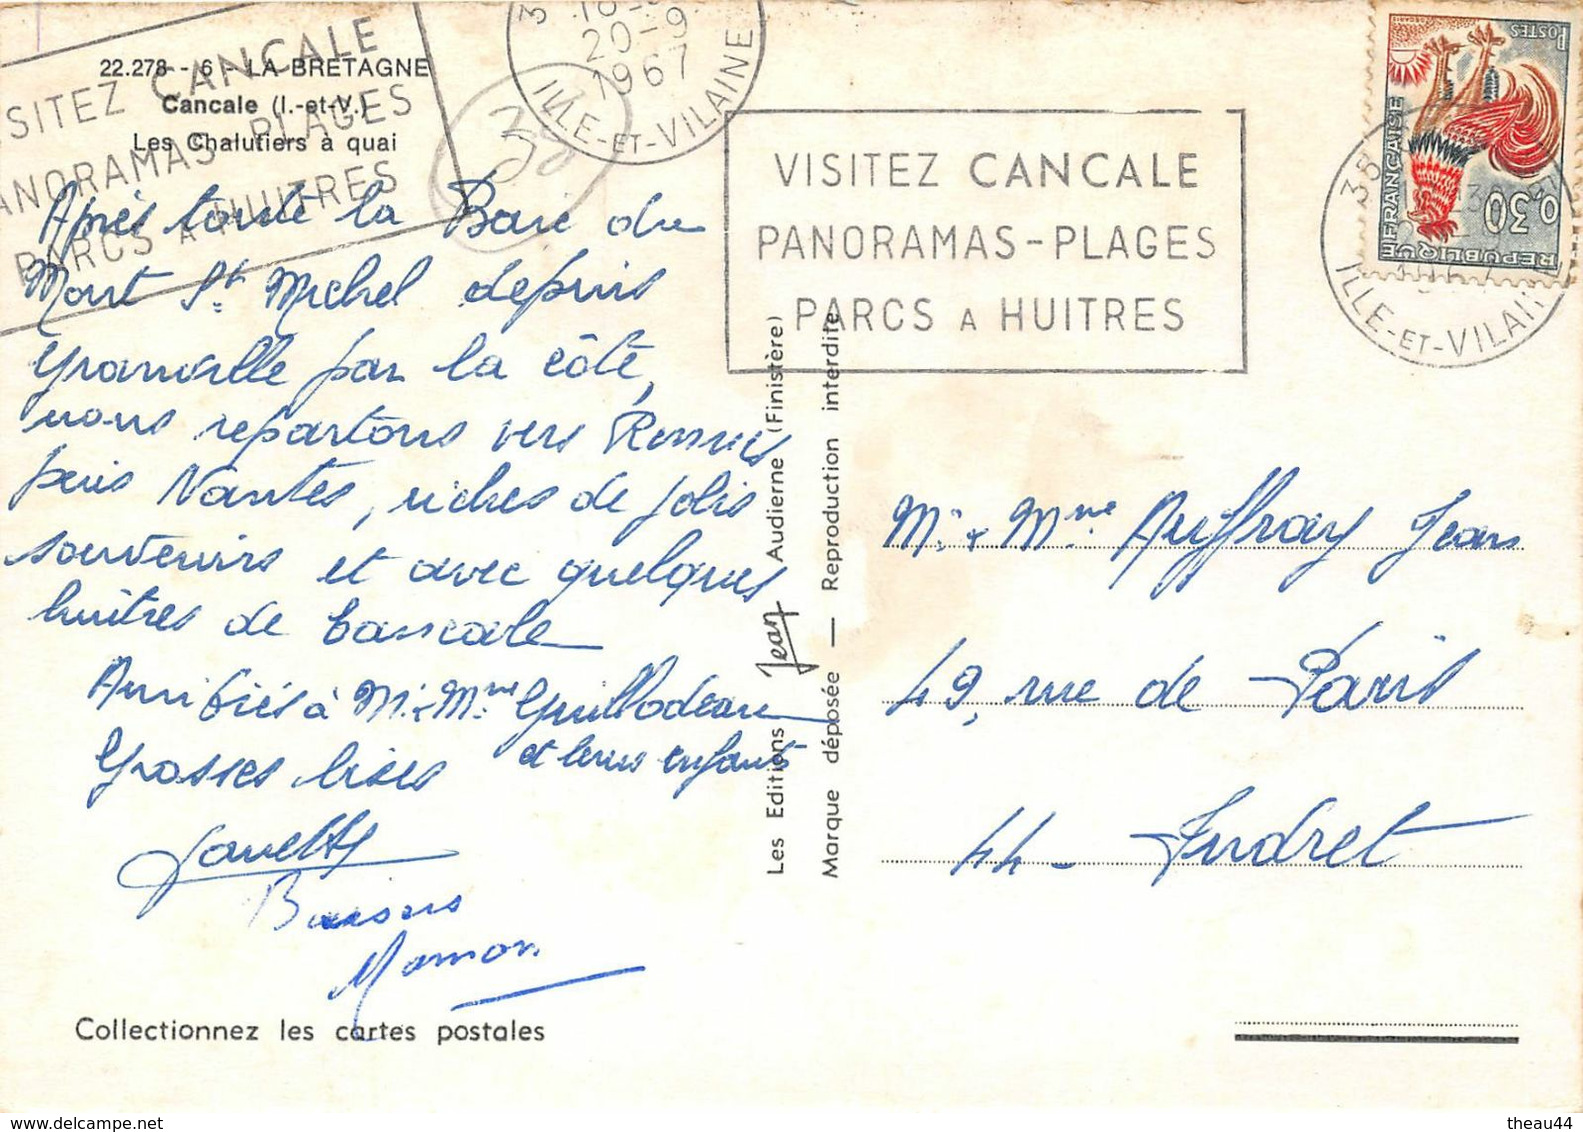 22.278 - 6 - LA BRETAGNE
Cancale (I.-et-V.)
Les Chalutiers à quai
SITEZ CANCALE
ANORAMAS PLAGES
PARCS A HUITRES
20-9
1967
ILLE-ET-VILAINE
38
VISITEZ CANCALE
PANORAMAS-PLAGES
PARCS A HUITRES
35
ILLE-ET-VILAIN
POSTES
REPUBLIQUE FRANÇAISE
0,30
Après toute la Baie du
Mont St. Michel depuis
Granville par la côte,
nous repartons vers Rennes
puis Nantes, riches de jolis
souvenirs et avec quelques
huitres de Cancale
Amitiés à Mr. & Mme Guillodeau
et leurs enfants
Grosses bises
Baisers
Maman
Mr. & Mme. Auffray Jean
49, rue de Paris
44 - Indret
Les Editions Jean Audierne (Finistère)
Marque déposée — Reproduction interdite
Collectionnez les cartes postales
theau44